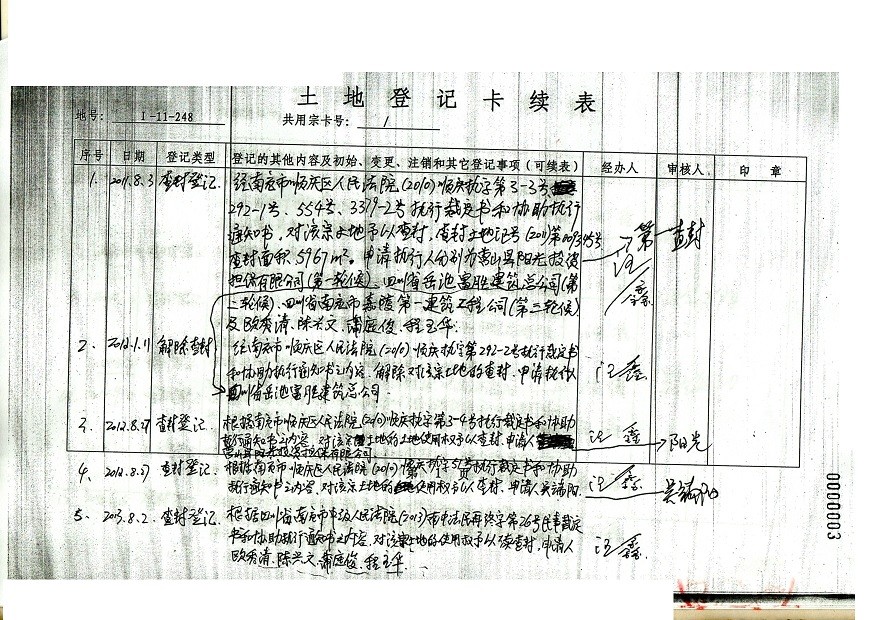 土地登记卡续表
地号: I-11-248 共用宗卡号: /
序号 日期 登记类型 登记的其他内容及初始、变更、注销和其它登记事项(可续表) 经办人 审核人 印章
1. 2011.8.3 查封登记. 经南充市顺庆区人民法院(2010)顺庆执字第3-3号
292-1号、554号、3379-2号执行裁定书和协助执行
通知书,对该宗土地予以查封,查封土地记号(2011)第
查封面积5967m². 申请执行人分别为营山县阳光投资
担保有限公司(第一轮候)、四川省岳池富胜建筑总公司(第
二轮候)、四川省南充市嘉陵第一建筑工程公司(第三轮候)
及欧秀清、陈兴文、蒲庭俊、程玉华.
汪鑫
第一查封
2、 2012.1.11 解除查封 经南充市顺庆区人民法院(2010)顺庆执字第292-2号执行裁定书
和协助执行通知书之内容,解除对该宗土地的查封、申请执行人
四川省岳池富胜建筑总公司.
汪鑫
3. 2012.8.27 查封登记. 根据南充市顺庆区人民法院(2010)顺庆执字第3-4号执行裁定书和协助
执行通知书之内容,对该宗土地的土地使用权予以查封、申请人
营山县阳光投资担保有限公司
汪鑫 阳光
4、 2012.8.27 查封登记. 根据南充市顺庆区人民法院(2010)
执行通知书之内容,对该宗土地的使用权予以查封、申请人吴瑞阳.
汪鑫
5、 2013.8.2. 查封登记. 根据四川省南充市中级人民法院(2013)南中法民再终字第26号民事裁定
书和协助执行通知书之内容,对该宗土地的使用权予以续查封,申请人
欧秀清、陈兴文、蒲庭俊、程玉华.
汪鑫.
0000003